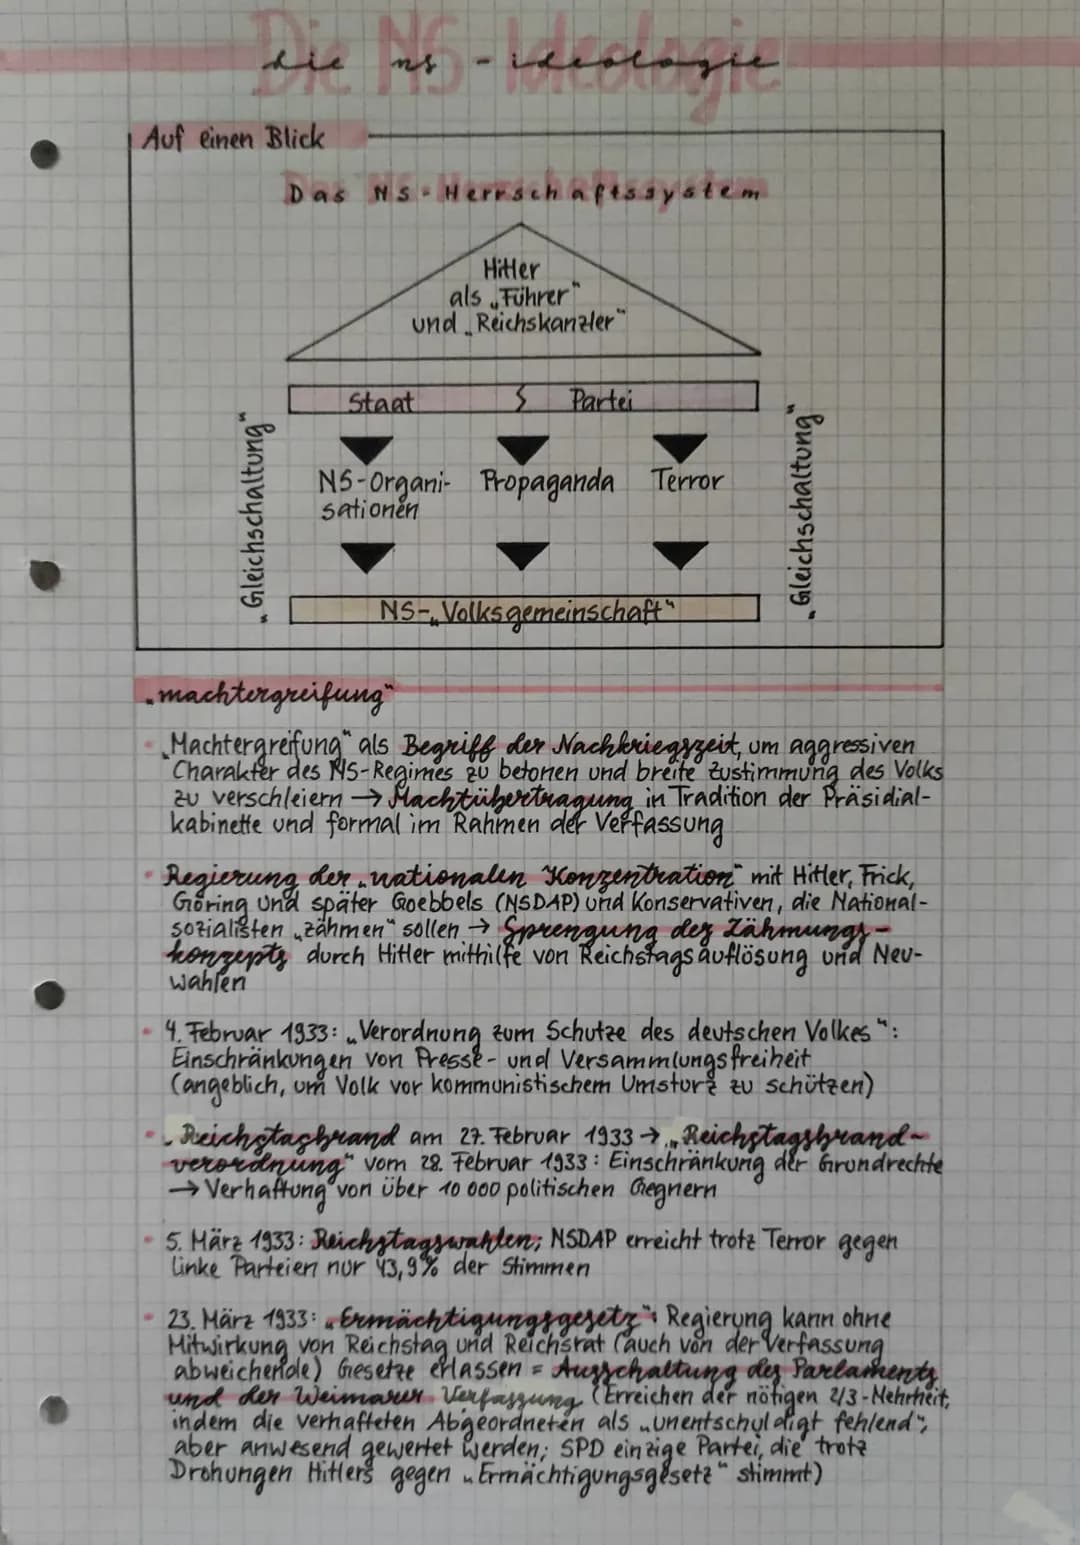 Die NS-Ideologie
die ns-ideologie
Auf einen Blick
Das NS-Herrschaftssystem
Hitler
als „Führer“
und „Reichskanzler“
Staat Partei
„Gleichschaltung“
NS-Organi- Propaganda Terror
sationen
„Gleichschaltung“
NS-„Volksgemeinschaft“
„machtergreifung“
• „Machtergreifung“ als Begriff der Nachkriegszeit, um aggressiven
Charakter des NS-Regimes zu betonen und breite Zustimmung des Volks
zu verschleiern → Machtübertragung in Tradition der Präsidial-
kabinette und formal im Rahmen der Verfassung
• Regierung der „nationalen Konzentration“ mit Hitler, Frick,
Göring und später Goebbels (NSDAP) und Konservativen, die National-
sozialisten „zähmen“ sollen → Sprengung des Zähmungs-
konzepts durch Hitler mithilfe von Reichstagsauflösung und Neu-
wahlen
• 4. Februar 1933: „Verordnung zum Schutze des deutschen Volkes“:
Einschränkungen von Presse- und Versammlungsfreiheit
(angeblich, um Volk vor kommunistischem Umsturz zu schützen)
• Reichstagbrand am 27. Februar 1933 → „Reichstagsbrand-
verordnung“ vom 28. Februar 1933: Einschränkung der Grundrechte
→ Verhaftung von über 10 000 politischen Gegnern
• 5. März 1933: Reichstagswahlen; NSDAP erreicht trotz Terror gegen
linke Parteien nur 43,9% der Stimmen
• 23. März 1933: „Ermächtigungsgesetz“: Regierung kann ohne
Mitwirkung von Reichstag und Reichsrat (auch von der Verfassung
abweichende) Gesetze erlassen = Ausschaltung des Parlaments
und der Weimarer Verfassung (Erreichen der nötigen 2/3-Mehrheit,
indem die verhafteten Abgeordneten als „unentschuldigt fehlend“,
aber anwesend gewertet werden; SPD einzige Partei, die trotz
Drohungen Hitlers gegen „Ermächtigungsgesetz“ stimmt)